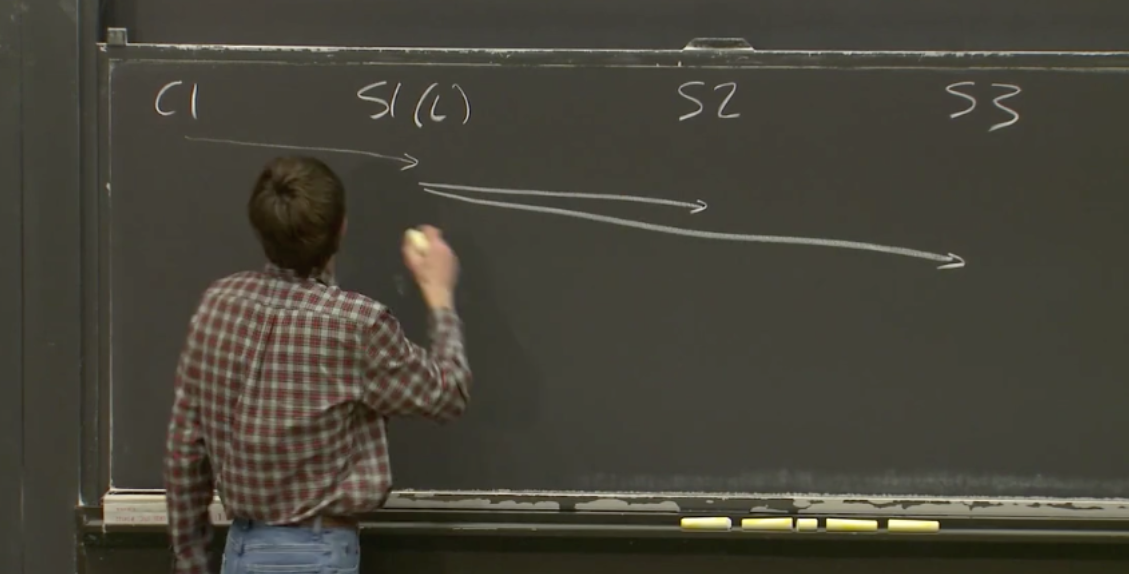 C1 S1(L) S2 S3